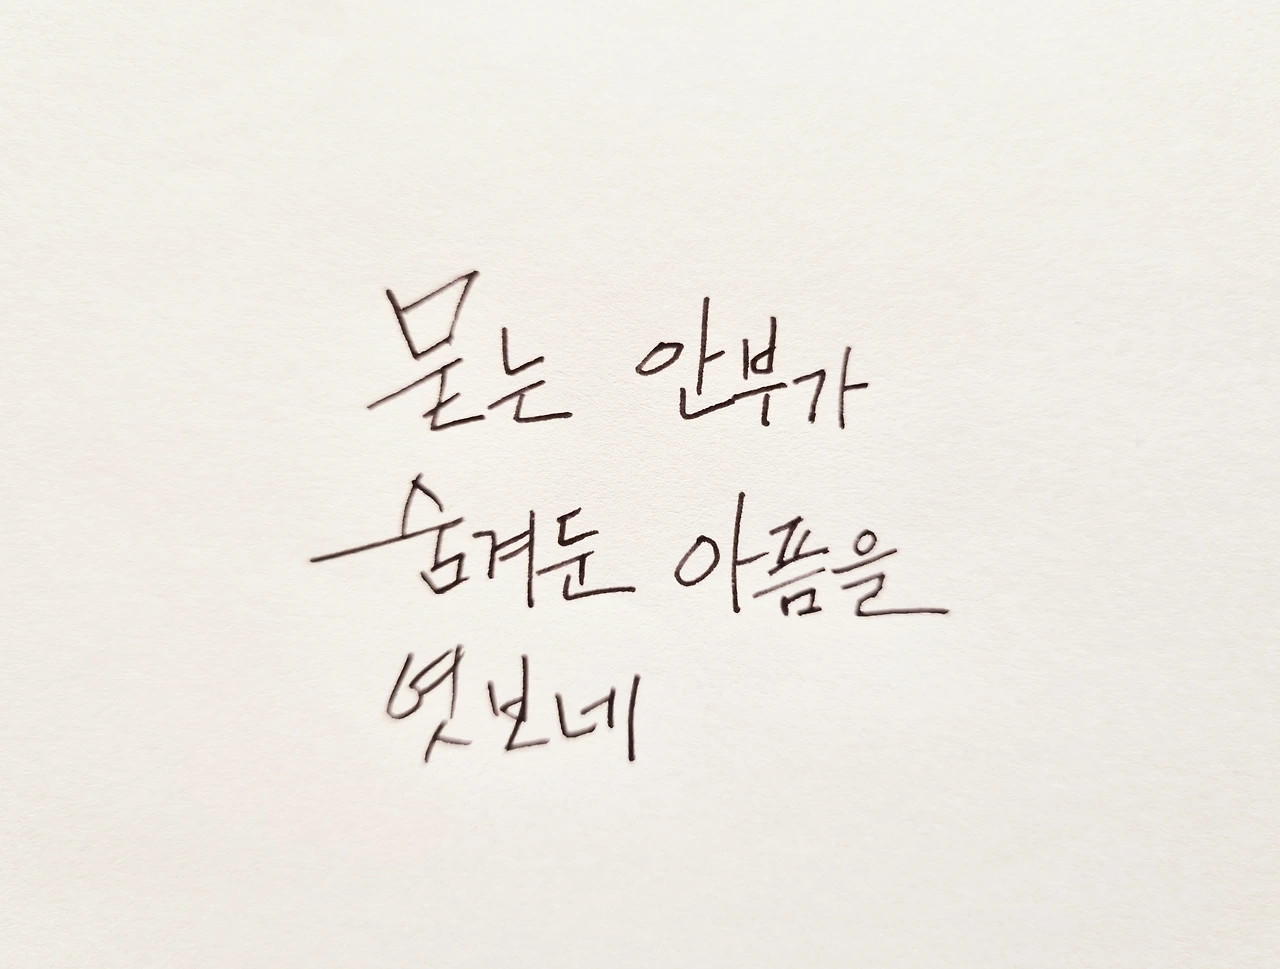 묻는 안부가
숨겨둔 아픔을
엿보네